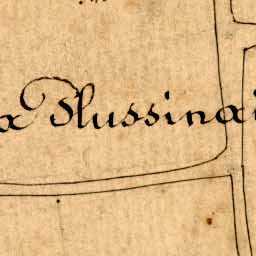 a Plussinai